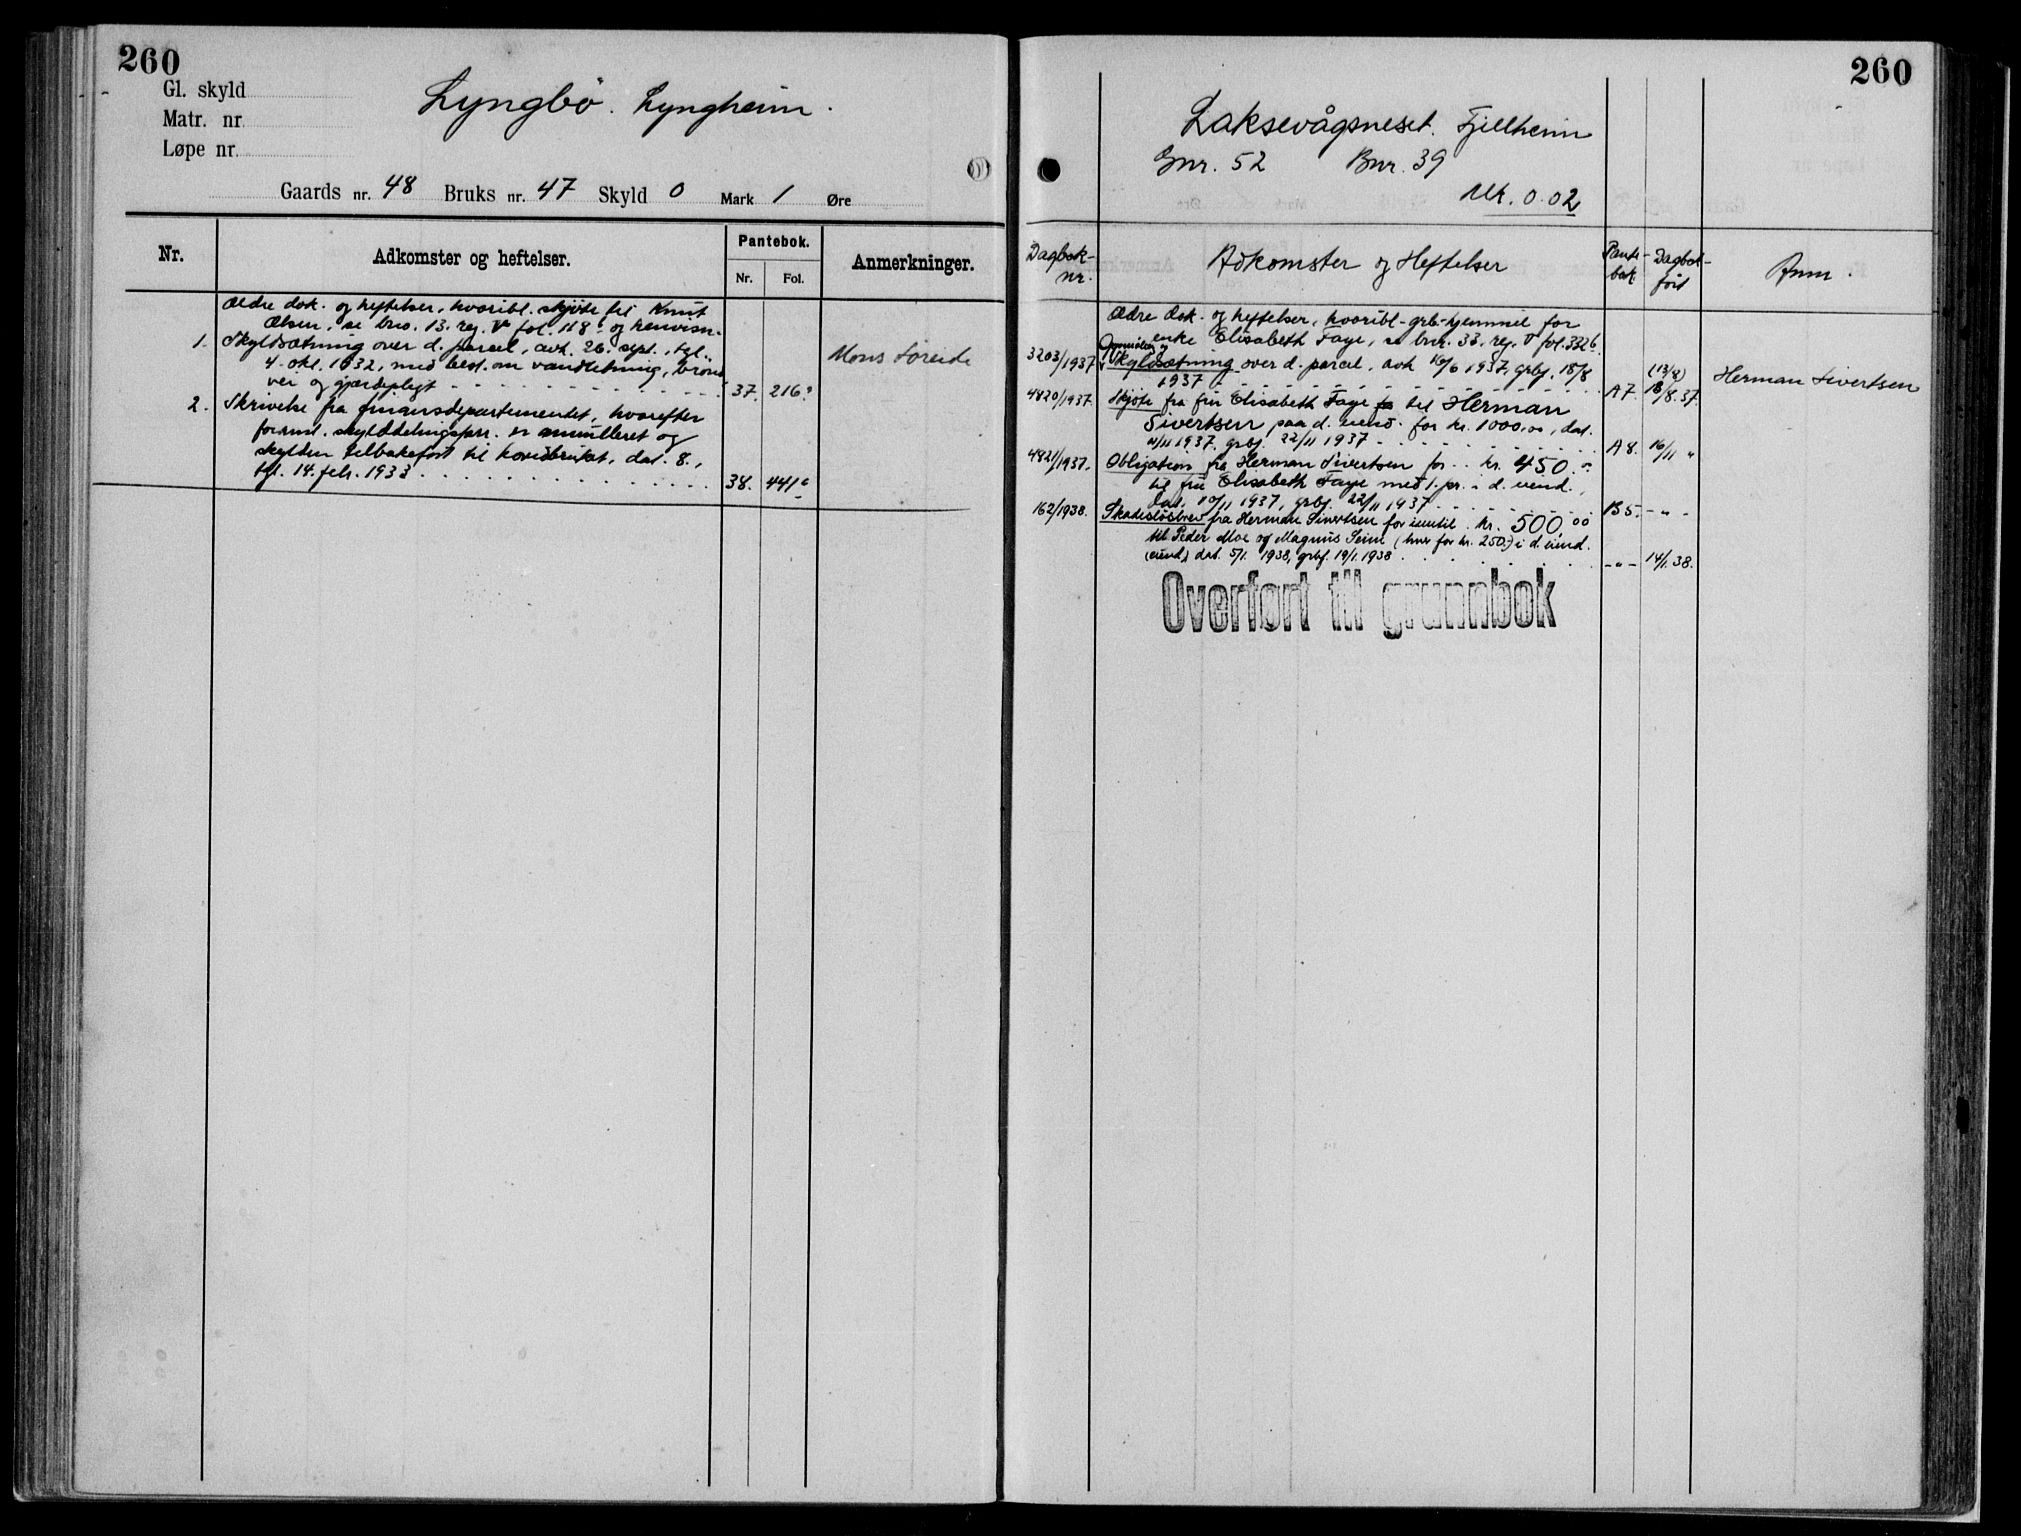 260
Gl. skyld
Matr. nr
Løpe nr.
Lyngbö. Lyngheim.
Gaards nr. 48 Bruks nr. 47 Skyld 0 Mark 1 Øre
Nr. Adkomster og heftelser. Pantebok. Anmerkninger.
Nr. Fol.
Ældre dok. og heftelser, hvoribl. skjöte til Knut
Olsen, se brno. 13. reg. V fol. 118 og henvisn.
1. Skyldsætning over d. parcel, avh. 26. sept., tgl.,
4. okt. 1932, med best. om vandledning, brönd
vei og gjerdepligt 37. 216
Mons Söreide
2. Skrivelse fra finansdepartementet, hvorefter
foranst. skylddelingsforr. er annulleret og
skylden tilbakefört til hovedbruket, dat. 8.,
tgl. 14. febr. 1933 38. 441
260
Laksevågsneset. Fjellheim
Gnr. 52 Bnr. 39
Mk. 0.02
Dagbok-
nr.
Adkomster og Heftelser
Pante-
bok
Dagbok-
fört
Anm.
Ældre dok. og heftelser, hvoribl. grb.hjemmel for
enke Elisabeth Faye, se bnr. 33, reg. V fol. 332
3203/1937 Opmåling og
Skyldsætning over d. parcel, avh 10/6 1937, grbf. 18/8
1937 A7 (13/8)
18/8.37.
Herman Sivertsen
4820/1937. Skjöte fra fru Elisabeth Faye til Herman
Sivertsen paa d. eiend. for kr. 1000,00, dat.
11/11 1937, grbf. 22/11 1937 A8. 16/11 "
4821/1937. Obligation fra Herman Sivertsen for kr. 450.-
til fru Elisabeth Faye med 1. pr. i d. eiend.,
dat. 10/11 1937, grbf. 22/11 1937 B5. - " -
162/1938. Skadeslösbrev fra Herman Sivertsen for inntil kr. 500,00
til Peder Moe og Magnus Seim (hver for kr. 250.-) i d. eiend.
dat. 5/1. 1938, grbf. 19/1. 1938 - " - 14/1.38.
Overført til grunnbok